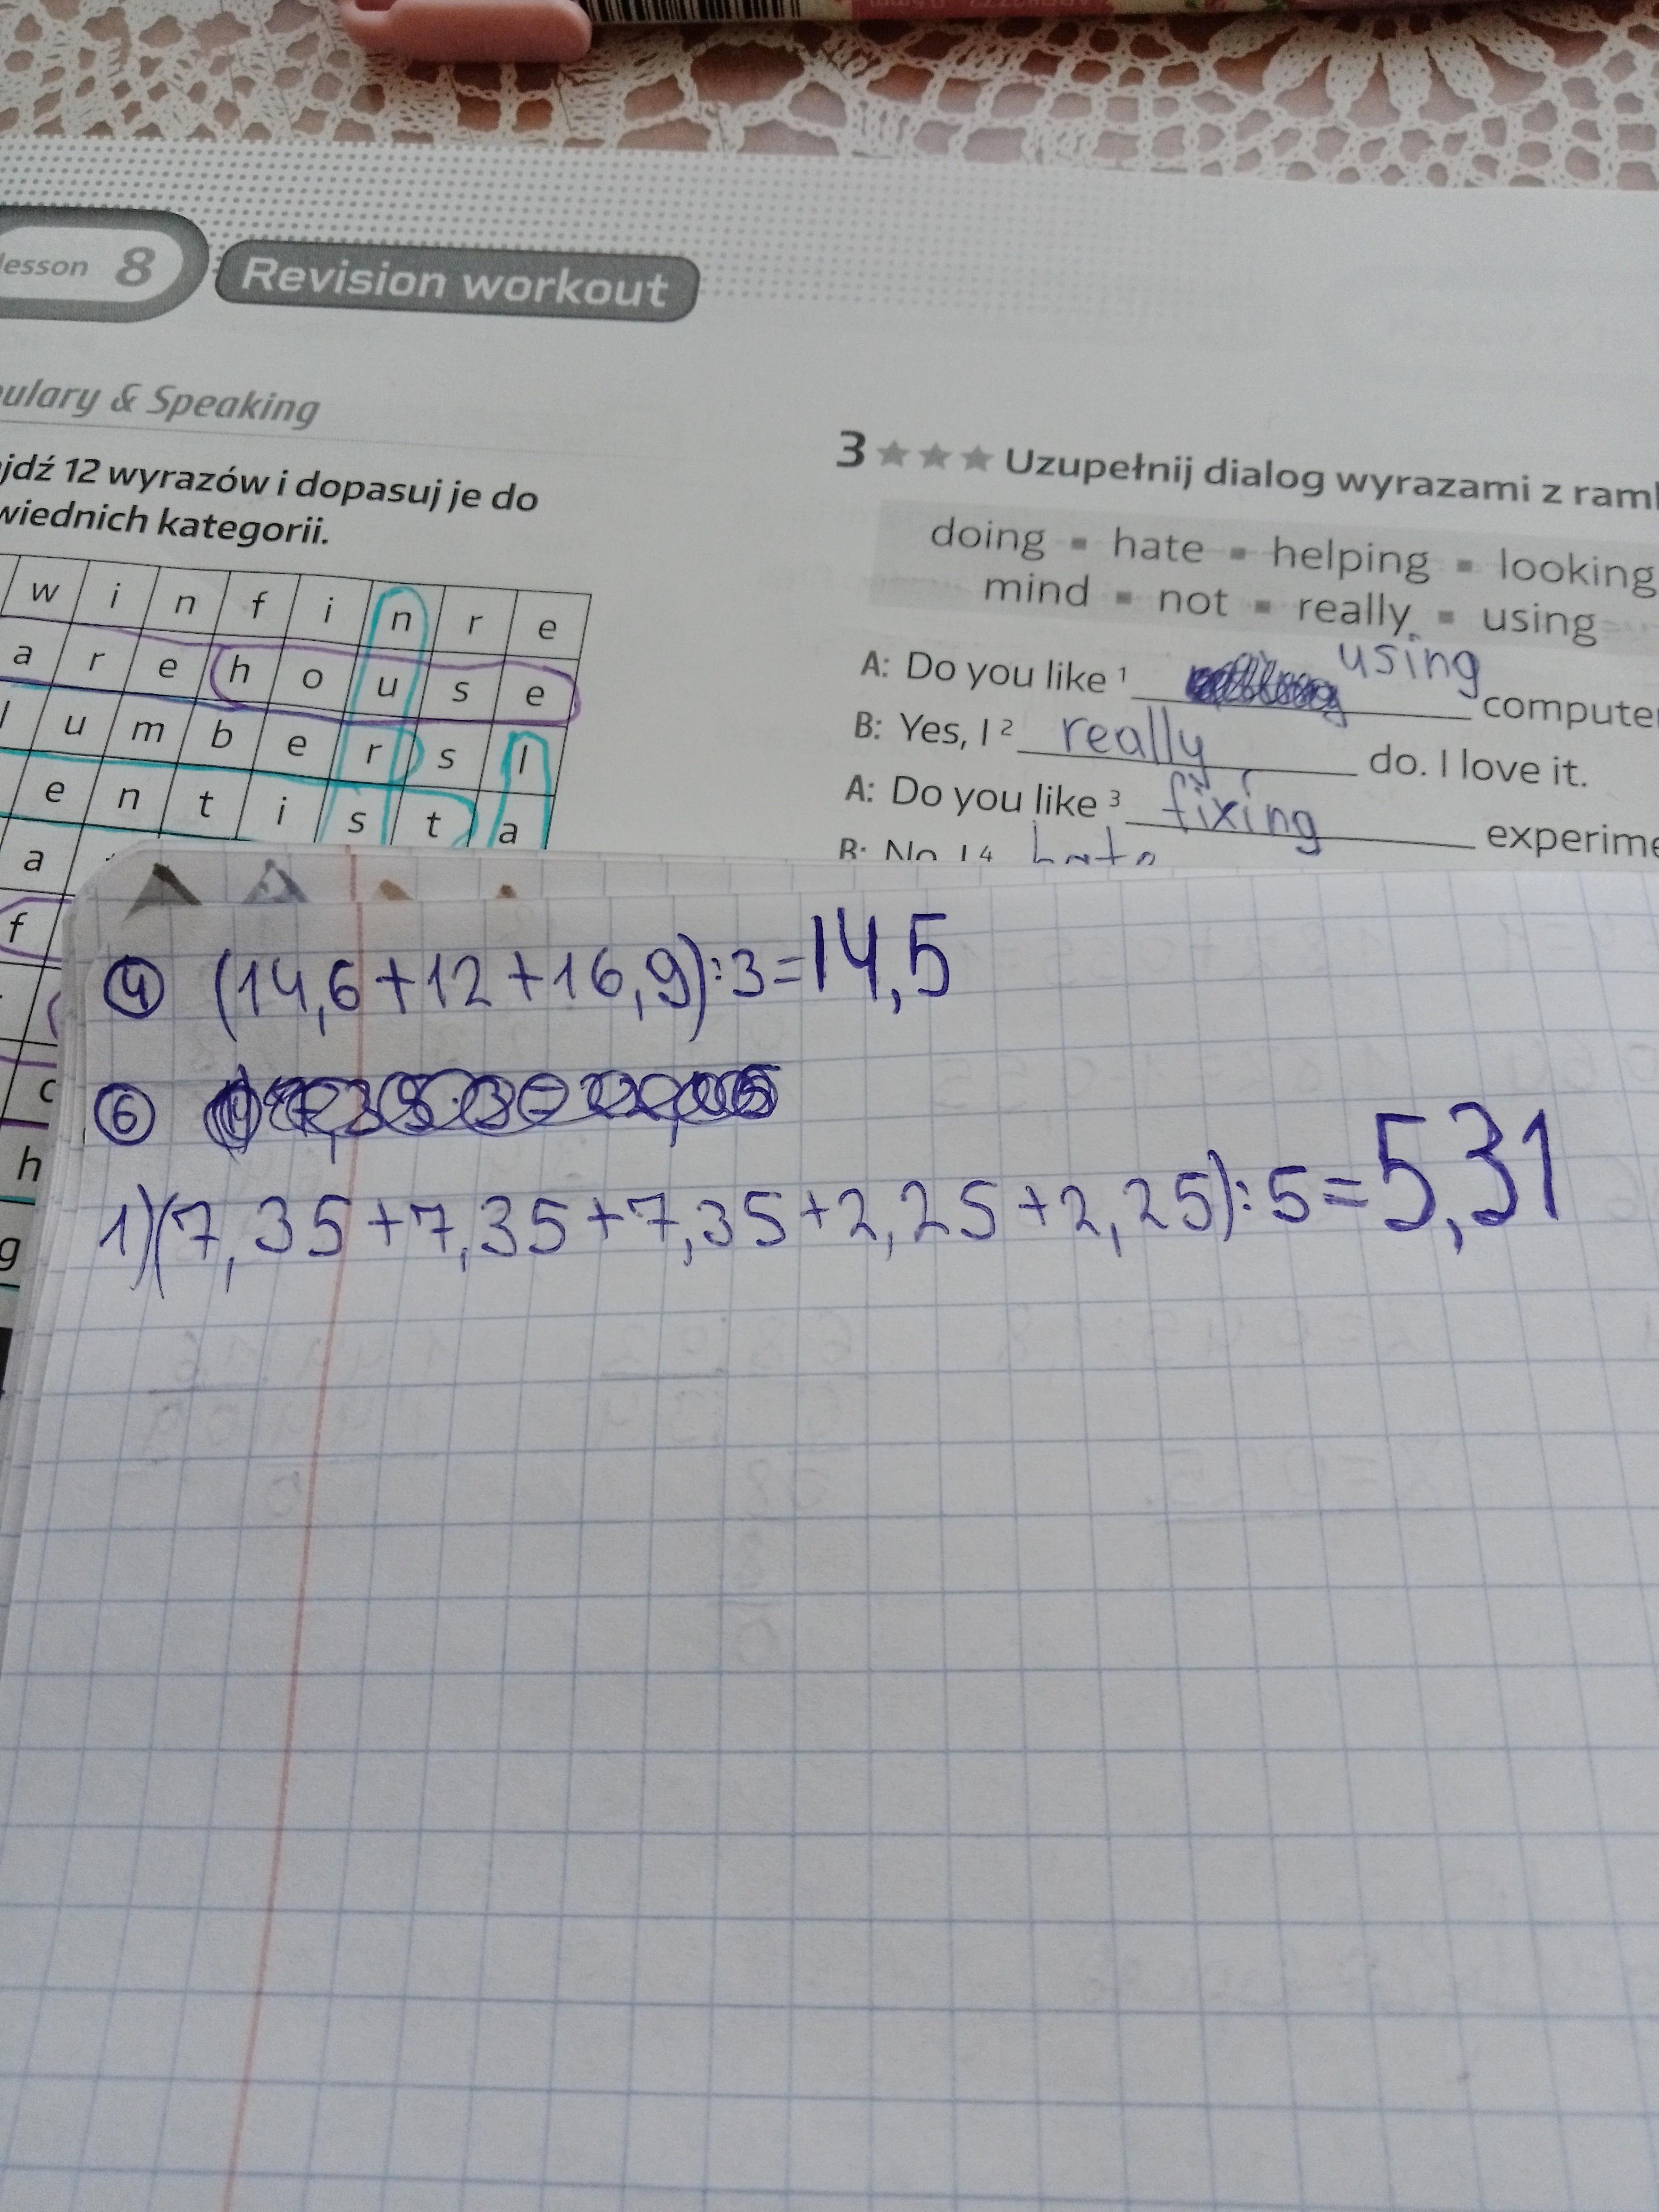 lesson 8 Revision workout
& Speaking
12 wyrazów i dopasuj je do
kategorii.
w i n f i n r e
a r e h o u s e
u m b e r s l
e n t i s t a
a
f
c
h
g
3 ★★★ Uzupełnij dialog wyrazami z
doing ▪ hate ▪ helping ▪ looking
mind ▪ not ▪ really ▪ using
A: Do you like ¹ using
B: Yes, I ² really do. I love it.
A: Do you like ³ fixing
B: No, I ⁴ hate
④ (14,6+12+16,9):3=14,5
⑥
1)(7,35+7,35+7,35+2,25+2,25):5=5,31